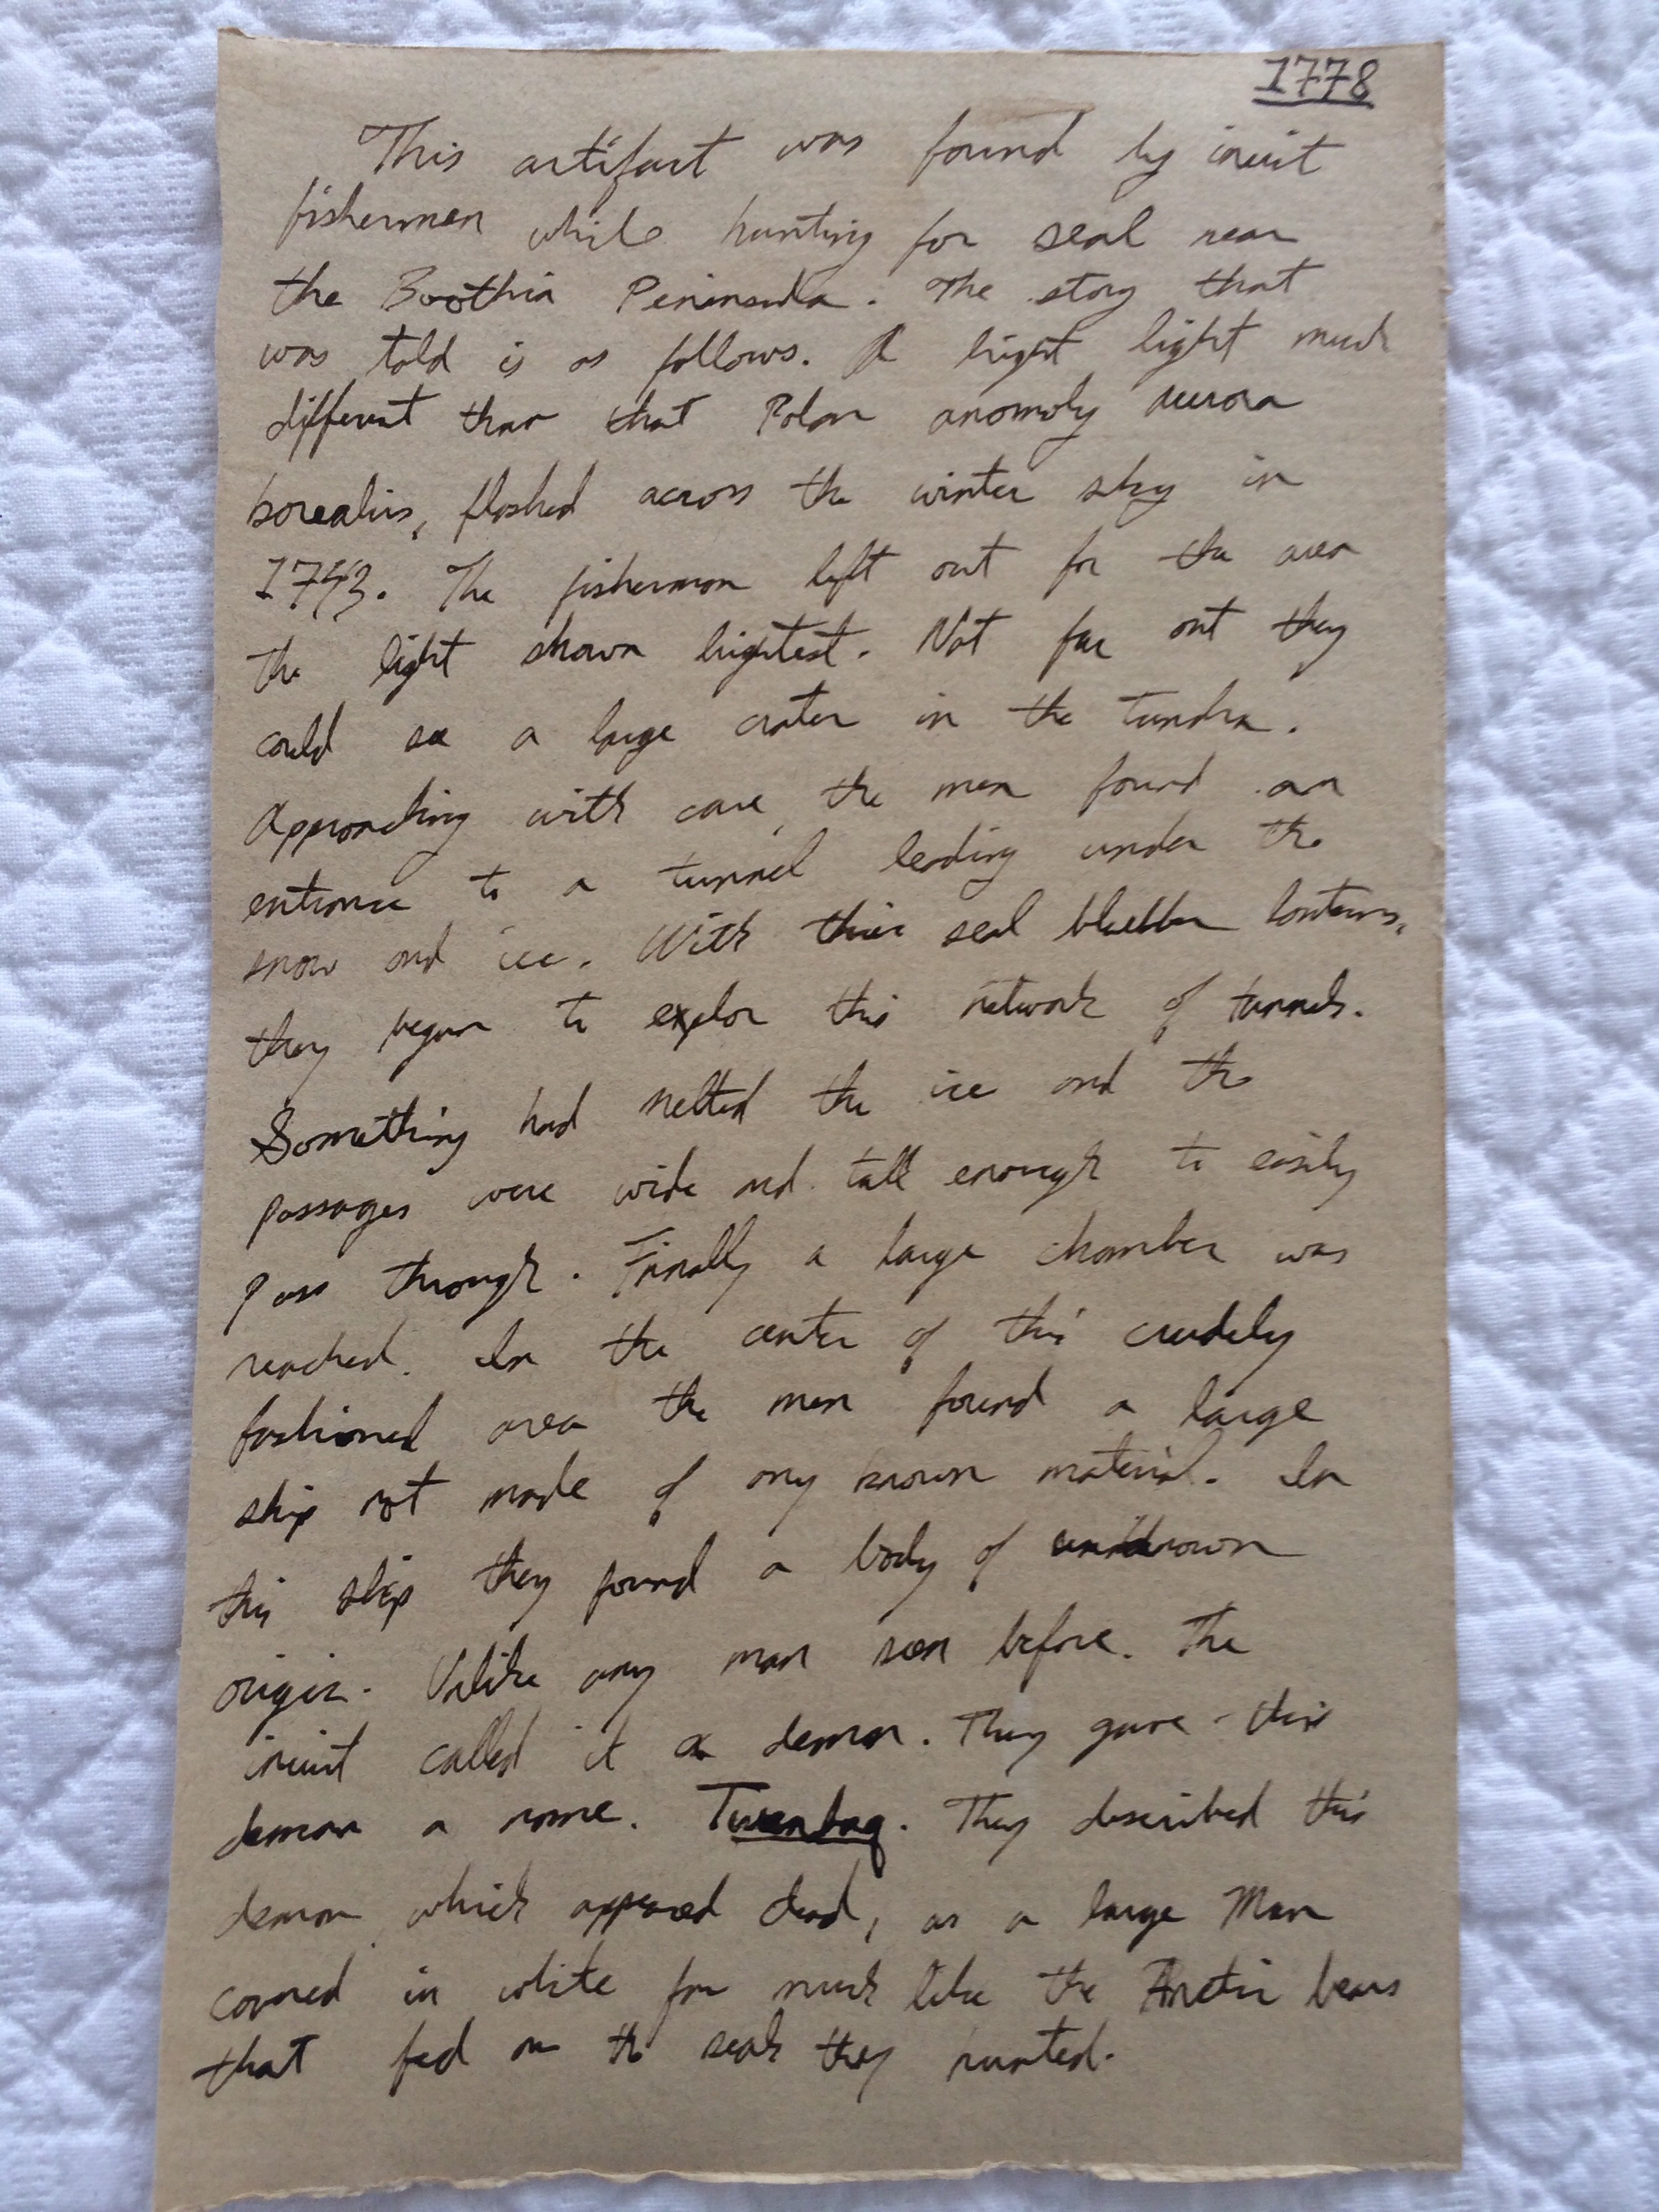 1778
This artifact was found by inuit
fishermen while hunting for seal near
the Boothia Peninsula. The story that
was told is as follows. A bright light much
different than that Polar anomoly aurora
borealis, flashed across the winter sky in
The fishermen left out for the area
the light shown brightest. Not far out they
could see a large crater in the tundra.
Approaching with care, the men found an
entrance to a tunnel leading under the
snow and ice. With their seal blubber lanterns,
they began to explor this network of tunnels.
Something had melted the ice and the
passages were wide and tall enough to easily
pass through. Finally a large chamber was
reached. In the center of this crudely
fashioned area the men found a large
ship not made of any known material. In
this ship they found a body of unknown
origin. Unlike any man seen before. The
inuit called it a demon. They gave this
demon a name. They described this
demon, which appeared dead, as a large Man
covered in white fur much like the Arctic bears
that fed on the seals they hunted.